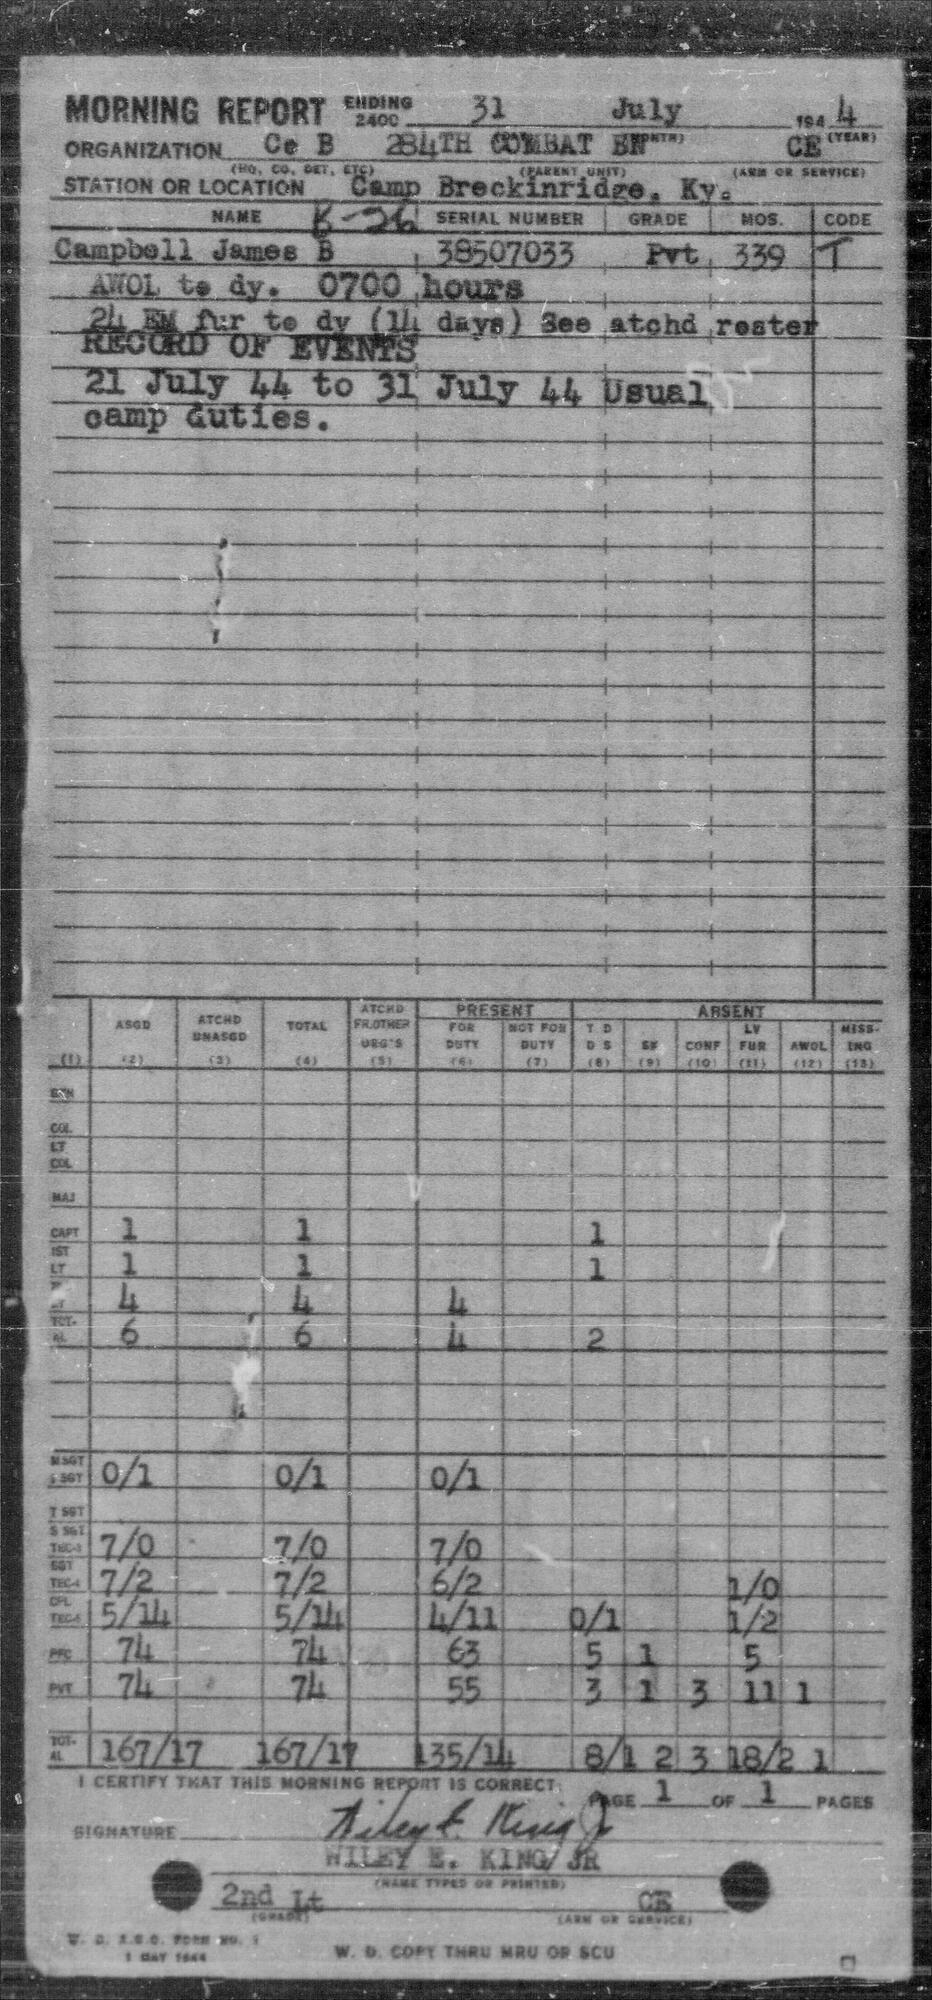 MORNING REPORT ENDING 2400 31 July 1944
(MONTH) (YEAR)
ORGANIZATION Co B 284TH COMBAT EN CE
(HQ, CO, DET, ETC) (PARENT UNIT) (ARM OR SERVICE)
STATION OR LOCATION Camp Breckinridge, Ky.
B-26
NAME SERIAL NUMBER GRADE MOS. CODE
Campbell James B 38507033 Pvt 339 T
AWOL to dy. 0700 hours
24 EM fur to dy (14 days) See atchd roster
RECORD OF EVENTS
21 July 44 to 31 July 44 Usual
camp duties.
ATCHD PRESENT ABSENT
ASGD ATCHD UNASGD TOTAL FR.OTHER ORG'S FOR DUTY NOT FOR DUTY T D D S SK CONF LV FUR AWOL MISS-ING
(1) (2) (3) (4) (5) (6) (7) (8) (9) (10) (11) (12) (13)
GEN
COL
LT COL
MAJ
CAPT 1 1 1
1ST LT 1 1 1
4 4 4
TOT-AL 6 6 4 2
M SGT
1 SGT 0/1 0/1 0/1
T SGT
S SGT
TEC-3 7/0 7/0 7/0
SGT
TEC-4 7/2 7/2 6/2 1/0
CPL
TEC-5 5/14 5/14 4/11 0/1 1/2
PFC 74 74 63 5 1 5
PVT 74 74 55 3 1 3 11 1
TOT-AL 167/17 167/17 135/14 8/1 2 3 18/2 1
I CERTIFY THAT THIS MORNING REPORT IS CORRECT. PAGE 1 OF 1 PAGES
SIGNATURE Wiley E. King Jr
WILEY E. KING JR
(NAME TYPED OR PRINTED)
2nd Lt CE
(GRADE) (ARM OR SERVICE)
W. D. A.G.O. FORM NO. 1
1 MAY 1944 W. D. COPY THRU MRU OR SCU